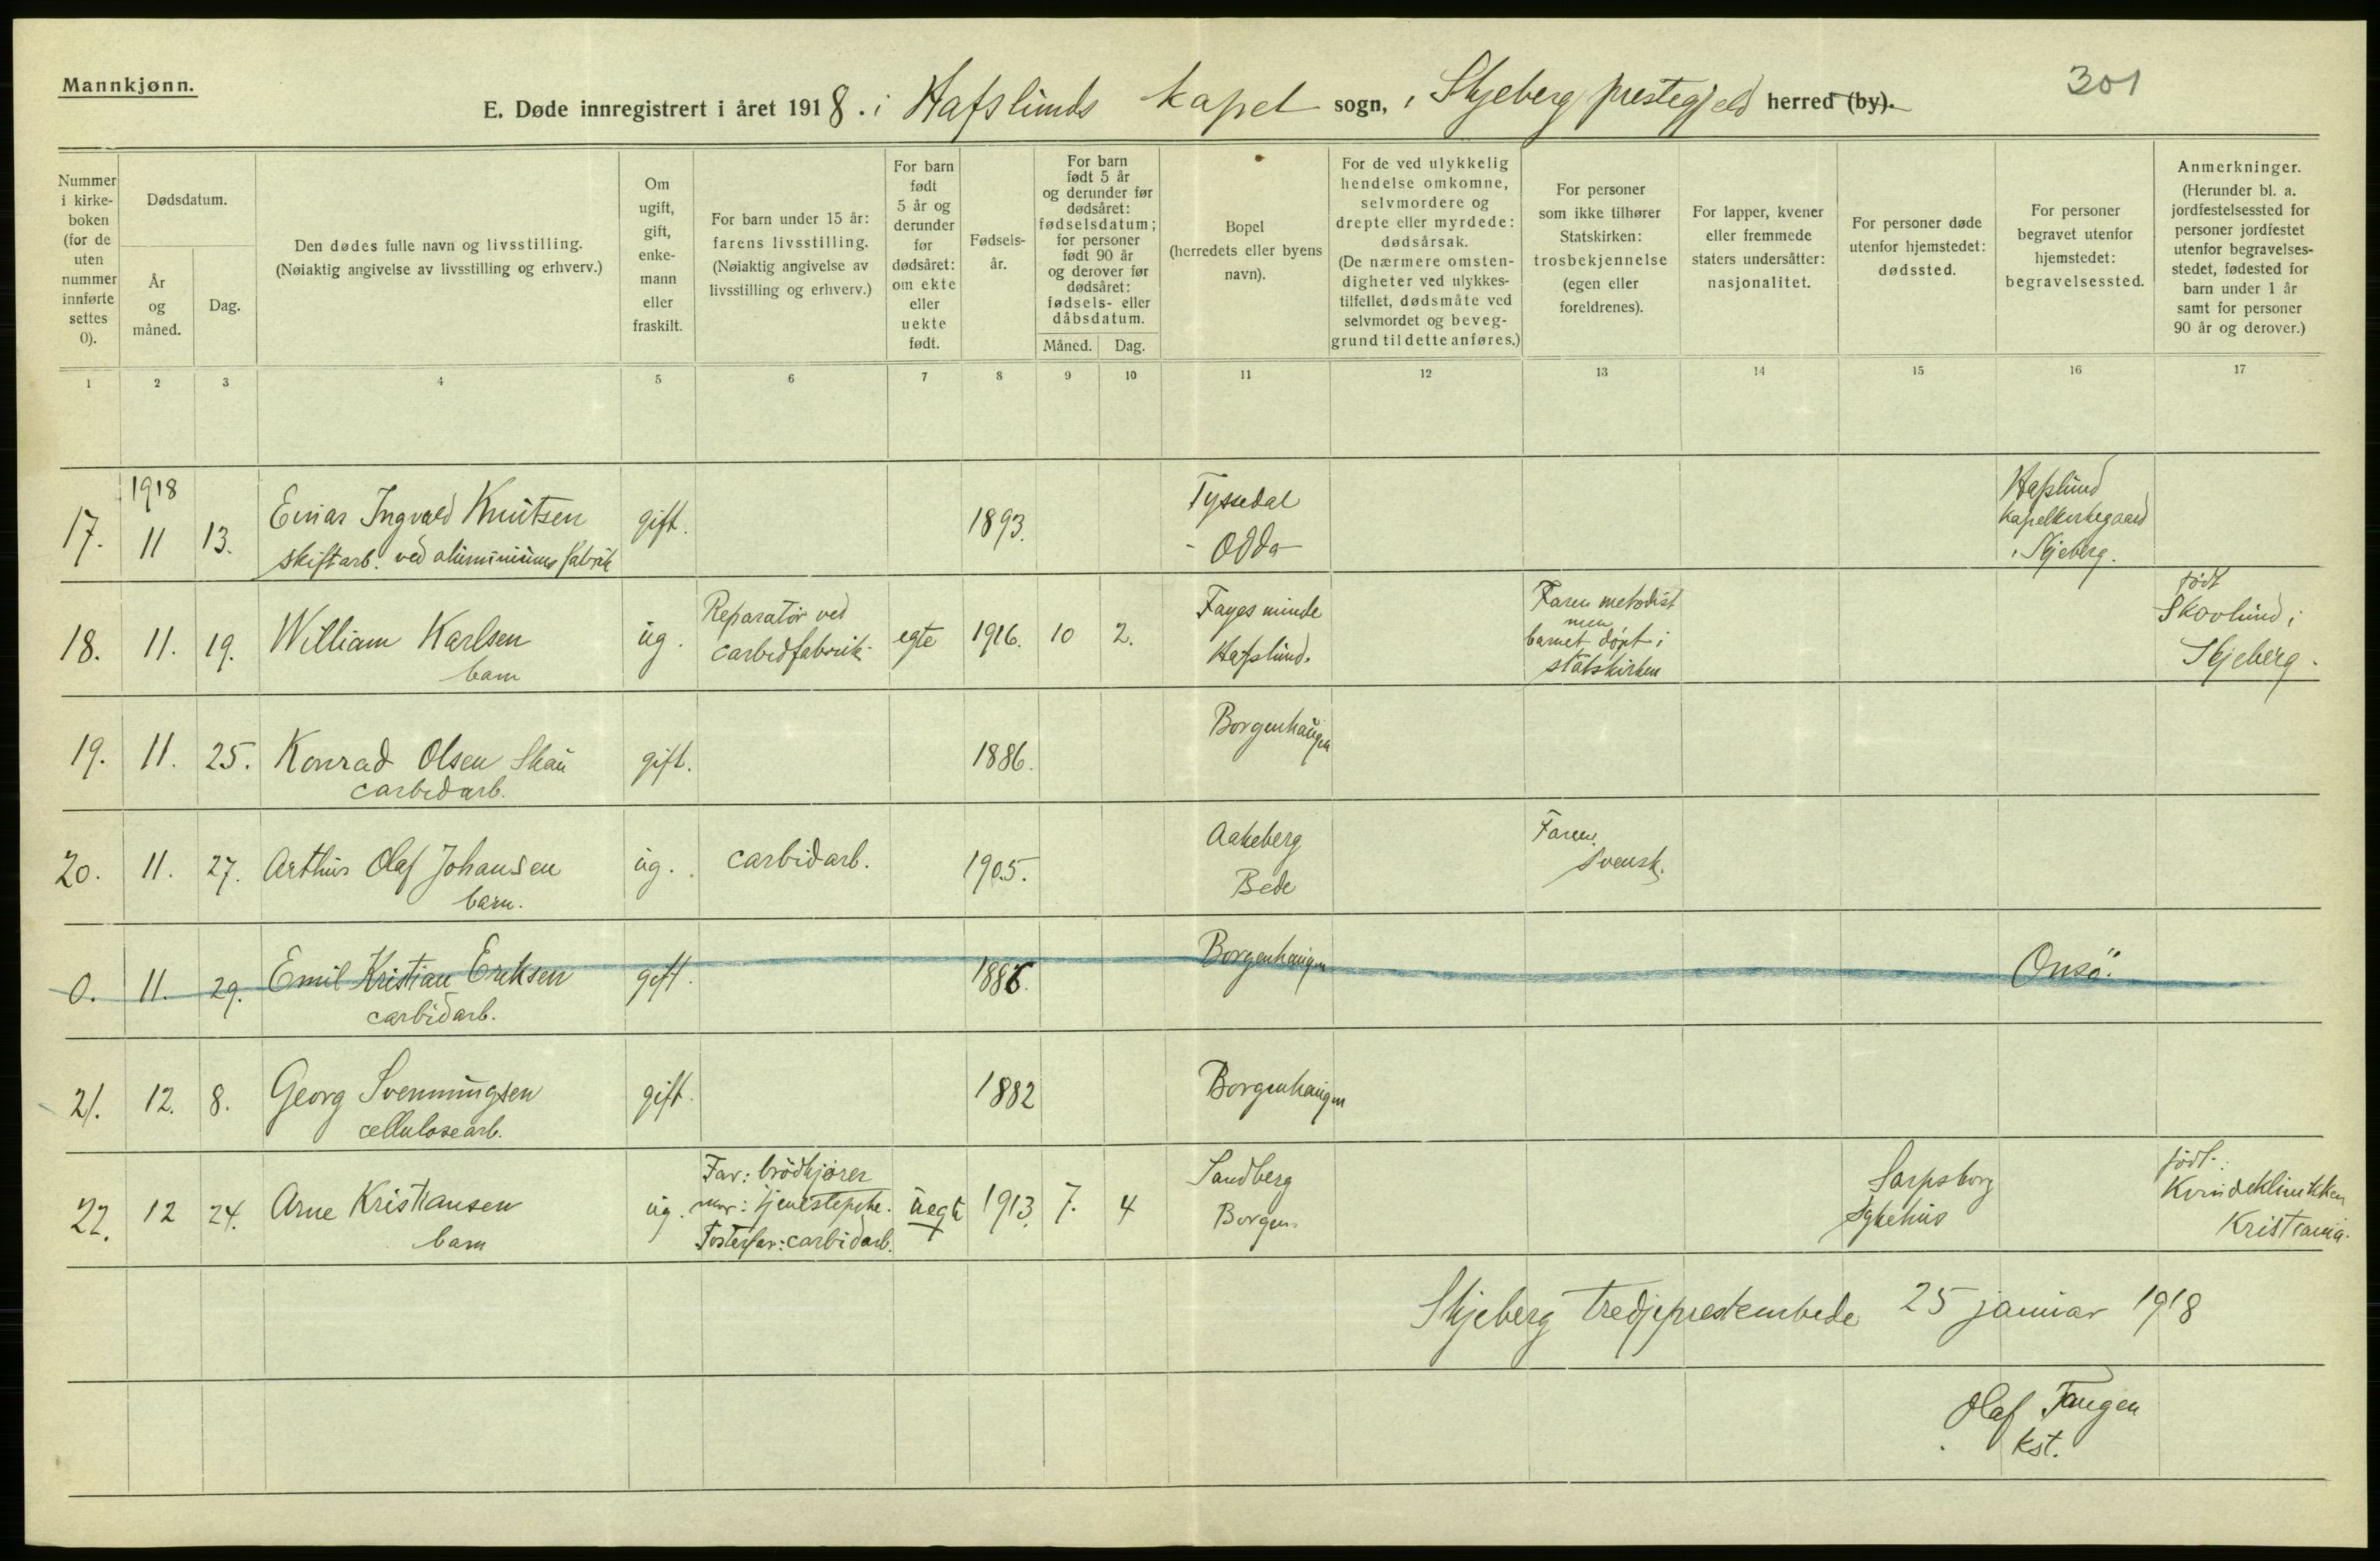 Mannkjønn.
301
E. Døde innregistrert i året 1918. i Hafslunds kapel sogn, i Skjeberg prestegjeld herred (by).
Nummer i kirke- boken (for de uten nummer innførte settes 0).
Dødsdatum.
År og måned.
Dag.
Den dødes fulle navn og livsstilling.
(Nøiaktig angivelse av livsstilling og erhverv.)
Om ugift, gift, enke- mann eller fraskilt.
For barn under 15 år: farens livsstilling. (Nøiaktig angivelse av livsstilling og erhverv.)
For barn født 5 år og derunder før dødsåret: om ekte eller uekte født.
Fødsels- år.
For barn født 5 år og derunder før dødsåret: fødselsdatum; for personer født 90 år og derover før dødsåret: fødsels- eller dåbsdatum.
Måned.
Dag.
Bopel (herredets eller byens navn).
For de ved ulykkelig hendelse omkomne, selvmordere og drepte eller myrdede: dødsårsak. (De nærmere omsten- digheter ved ulykkes- tilfellet, dødsmåte ved selvmordet og beveg- grund til dette anføres.)
For personer som ikke tilhører Statskirken: trosbekjennelse (egen eller foreldrenes).
For lapper, kvener eller fremmede staters undersåtter: nasjonalitet.
For personer døde utenfor hjemstedet: dødssted.
For personer begravet utenfor hjemstedet: begravelsessted.
Anmerkninger. (Herunder bl. a. jordfestelsessted for personer jordfestet utenfor begravelses- stedet, fødested for barn under 1 år samt for personer 90 år og derover.)
1 2 3 4 5 6 7 8 9 10 11 12 13 14 15 16 17
1918
17. 11 13. Einar Ingvald Knutsen gift. 1893. Tyssedal Hafslund
skiftarb. ved aluminiums fabrik - Odda - kapelkirkegaard
i Skjeberg.
18. 11. 19. William Karlsen ug. Reparatør ved egte 1916. 10 2. Fagesminde Faren metodist født
barn carbidfabrik. Hafslund. men Skovlund i
barnet døpt i Skjeberg.
statskirken
19. 11. 25. Konrad Olsen Skau gift. 1886. Borgenhaugen
carbidarb.
20. 11. 27. Arthur Olaf Johansen ug. carbidarb. 1905. Aakeberg Faren
barn. Bede svensk.
0. 11. 29. Emil Kristian Eriksen gift. 1886. Borgenhaugen Onsø.
carbidarb.
21. 12. 8. Georg Svenningsen gift. 1882 Borgenhaugen
cellulosearb.
22. 12 24. Arne Kristiansen ug. Far: brødkjører uegte 1913. 7. 4 Sandberg Sarpsborg født:
barn mor: tjenestepike. Borgen. Sykehus Kvindeklinikken
Fosterfar: carbidarb. Kristiania.
Skjeberg tredjeprestembede 25 januar 1918
Olaf Tangen
kst.